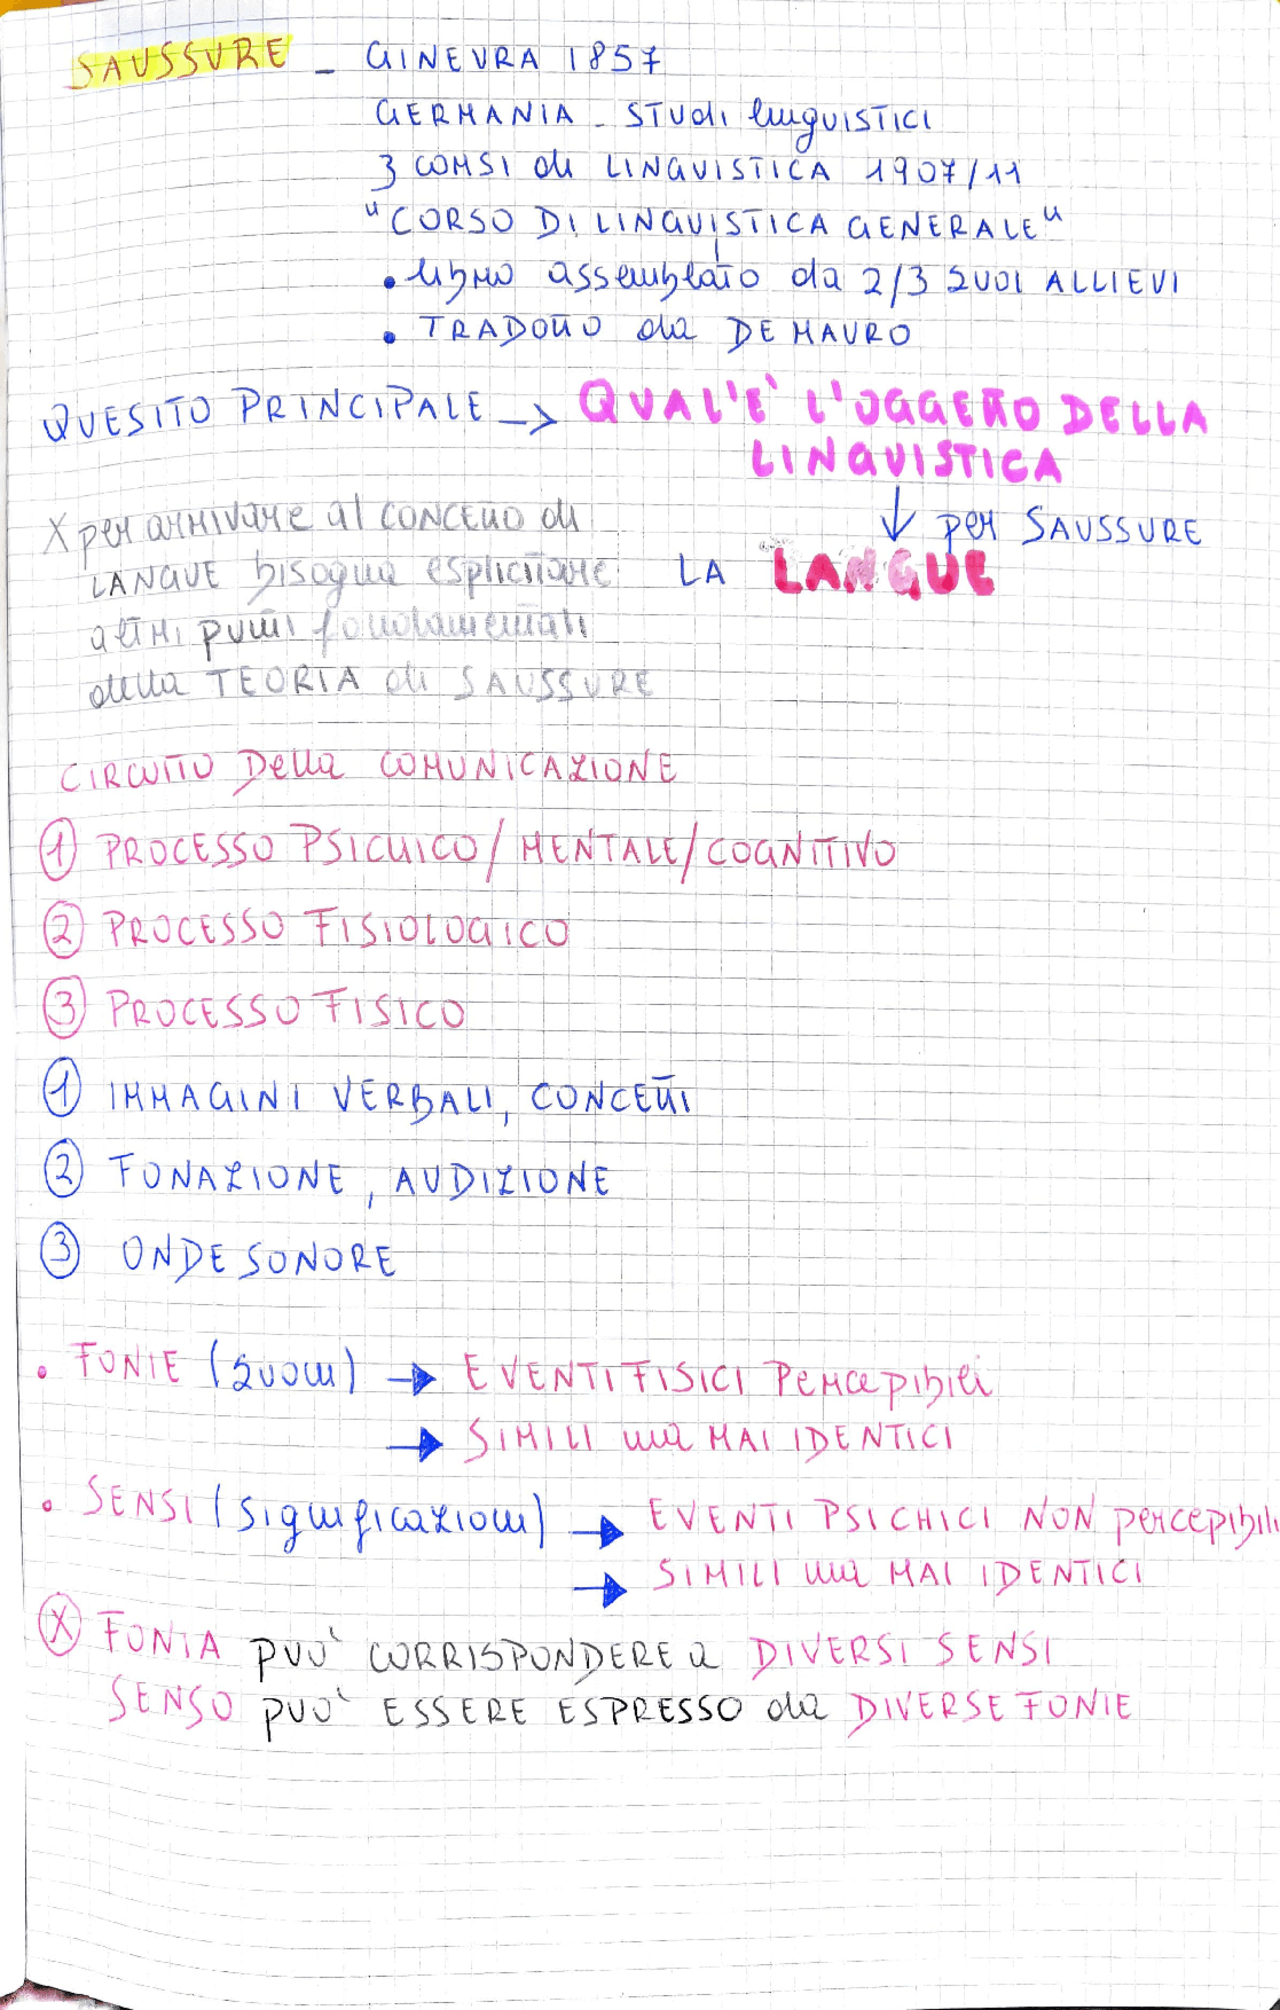 SAUSSURE - GINEVRA 1857
GERMANIA - STUDI linguISTICI
3 CORSI di LINGUISTICA 1907/11
"CORSO DI LINGUISTICA GENERALE"
• libro assemblato da 2/3 SUOI ALLIEVI
• TRADOTTO da DE MAURO
QUESITO PRINCIPALE -> QUAL'E' L'OGGETTO DELLA
LINGUISTICA
↓ per SAUSSURE
LA LANGUE
X per arrivare al CONCETTO di
LANGUE bisogna esplicitare
altri punti fondamentali
della TEORIA di SAUSSURE
CIRCUITO Della COMUNICAZIONE
① PROCESSO PSICHICO/MENTALE/COGNITIVO
② PROCESSO FISIOLOGICO
③ PROCESSO FISICO
① IMMAGINI VERBALI, CONCETTI
② FONAZIONE, AUDIZIONE
③ ONDE SONORE
• FONIE (suoni) → EVENTI FISICI Percepibili
→ SIMILI ma MAI IDENTICI
• SENSI (significazioni) → EVENTI PSICHICI NON percepibili
→ SIMILI ma MAI IDENTICI
Ⓧ FONIA PUO' CORRISPONDERE a DIVERSI SENSI
SENSO PUO' ESSERE ESPRESSO da DIVERSE FONIE